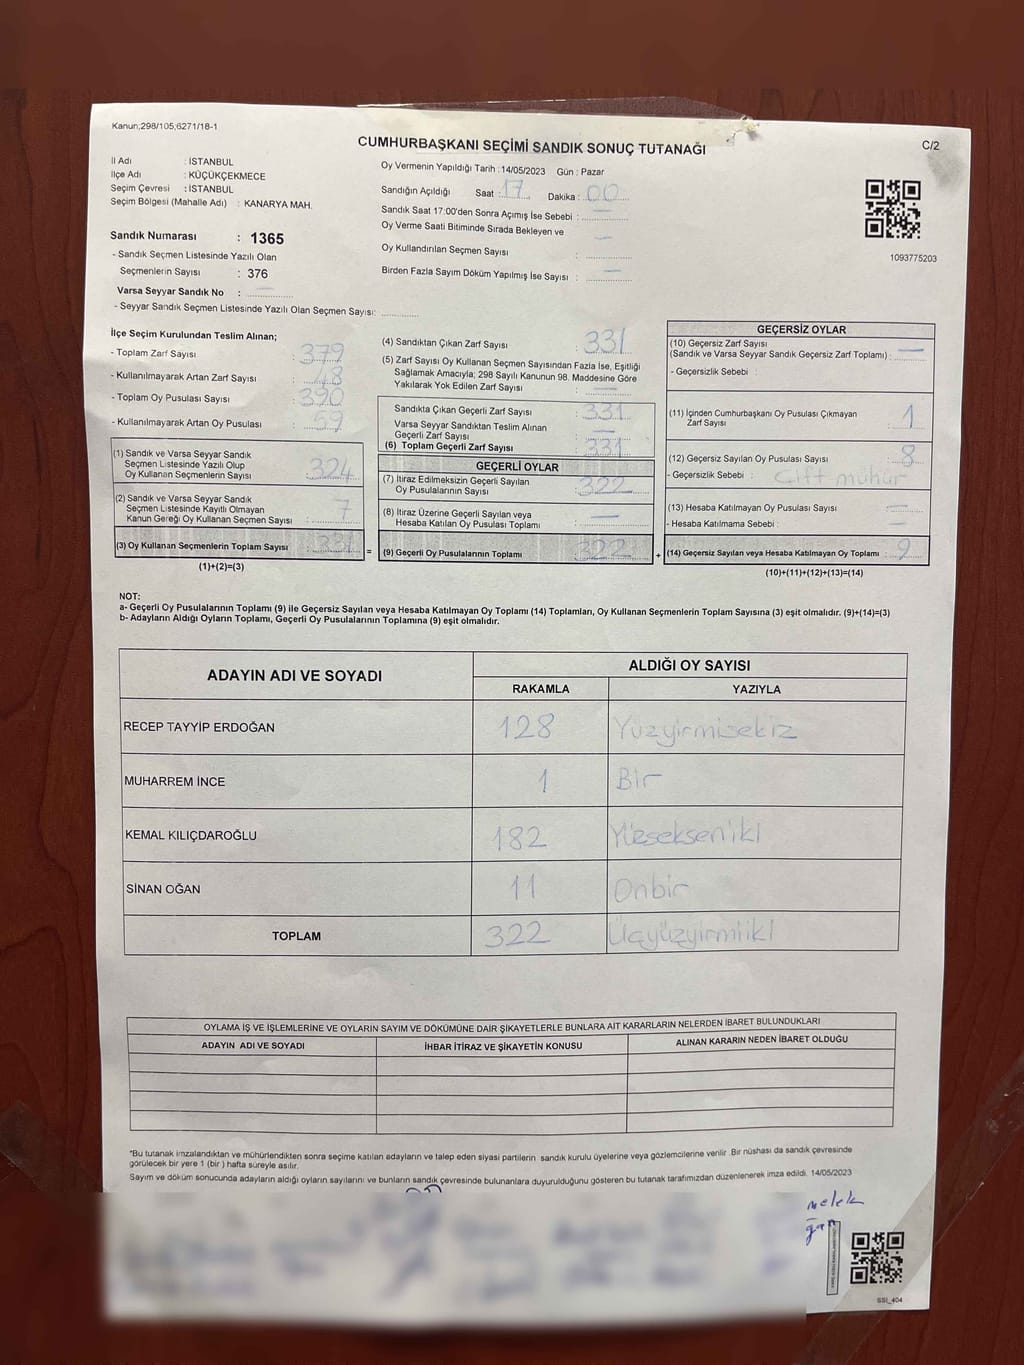 Kanun;298/105;6271/18-1
CUMHURBAŞKANI SEÇİMİ SANDIK SONUÇ TUTANAĞI
C/2
İl Adı : İSTANBUL
İlçe Adı : KÜÇÜKÇEKMECE
Seçim Çevresi : İSTANBUL
Seçim Bölgesi (Mahalle Adı) : KANARYA MAH.
Sandık Numarası : 1365
- Sandık Seçmen Listesinde Yazılı Olan
Seçmenlerin Sayısı : 376
Varsa Seyyar Sandık No :
- Seyyar Sandık Seçmen Listesinde Yazılı Olan Seçmen Sayısı:
Oy Vermenin Yapıldığı Tarih : 14/05/2023 Gün : Pazar
Sandığın Açıldığı Saat : 17 Dakika : 00
Sandık Saat 17:00'den Sonra Açımış İse Sebebi :
Oy Verme Saati Bitiminde Sırada Bekleyen ve
Oy Kullandırılan Seçmen Sayısı :
Birden Fazla Sayım Döküm Yapılmış İse Sayısı :
1093775203
İlçe Seçim Kurulundan Teslim Alınan;
- Toplam Zarf Sayısı : 379
- Kullanılmayarak Artan Zarf Sayısı : 48
- Toplam Oy Pusulası Sayısı : 390
- Kullanılmayarak Artan Oy Pusulası : 59
(1) Sandık ve Varsa Seyyar Sandık
Seçmen Listesinde Yazılı Olup
Oy Kullanan Seçmenlerin Sayısı : 324
(2) Sandık ve Varsa Seyyar Sandık
Seçmen Listesinde Kayıtlı Olmayan
Kanun Gereği Oy Kullanan Seçmen Sayısı : 7
(3) Oy Kullanan Seçmenlerin Toplam Sayısı : 331
(1)+(2)=(3)
(4) Sandıktan Çıkan Zarf Sayısı : 331
(5) Zarf Sayısı Oy Kullanan Seçmen Sayısından Fazla İse, Eşitliği
Sağlamak Amacıyla; 298 Sayılı Kanunun 98. Maddesine Göre
Yakılarak Yok Edilen Zarf Sayısı :
Sandıkta Çıkan Geçerli Zarf Sayısı : 331
Varsa Seyyar Sandıktan Teslim Alınan
Geçerli Zarf Sayısı :
(6) Toplam Geçerli Zarf Sayısı : 331
GEÇERLİ OYLAR
(7) İtiraz Edilmeksizin Geçerli Sayılan
Oy Pusulalarının Sayısı : 322
(8) İtiraz Üzerine Geçerli Sayılan veya
Hesaba Katılan Oy Pusulası Toplamı :
= (9) Geçerli Oy Pusulalarının Toplamı : 322
GEÇERSİZ OYLAR
(10) Geçersiz Zarf Sayısı
(Sandık ve Varsa Seyyar Sandık Geçersiz Zarf Toplamı) :
- Geçersizlik Sebebi :
(11) İçinden Cumhurbaşkanı Oy Pusulası Çıkmayan
Zarf Sayısı : 1
(12) Geçersiz Sayılan Oy Pusulası Sayısı : 8
- Geçersizlik Sebebi : Çift mühür
(13) Hesaba Katılmayan Oy Pusulası Sayısı :
- Hesaba Katılmama Sebebi :
+ (14) Geçersiz Sayılan veya Hesaba Katılmayan Oy Toplamı : 9
(10)+(11)+(12)+(13)=(14)
NOT:
a- Geçerli Oy Pusulalarının Toplamı (9) ile Geçersiz Sayılan veya Hesaba Katılmayan Oy Toplamı (14) Toplamları, Oy Kullanan Seçmenlerin Toplam Sayısına (3) eşit olmalıdır. (9)+(14)=(3)
b- Adayların Aldığı Oyların Toplamı, Geçerli Oy Pusulalarının Toplamına (9) eşit olmalıdır.
ADAYIN ADI VE SOYADI ALDIĞI OY SAYISI
RAKAMLA YAZIYLA
RECEP TAYYİP ERDOĞAN 128 Yüzyirmisekiz
MUHARREM İNCE 1 Bir
KEMAL KILIÇDAROĞLU 182 Yüeseksen'ikl
SİNAN OĞAN 11 Onbir
TOPLAM 322 Üçyüzyirmiikl
OYLAMA İŞ VE İŞLEMLERİNE VE OYLARIN SAYIM VE DÖKÜMÜNE DAİR ŞİKAYETLERLE BUNLARA AİT KARARLARIN NELERDEN İBARET BULUNDUKLARI
ADAYIN ADI VE SOYADI İHBAR İTİRAZ VE ŞİKAYETİN KONUSU ALINAN KARARIN NEDEN İBARET OLDUĞU
*Bu tutanak imzalandıktan ve mühürlendikten sonra seçime katılan adayların ve talep eden siyasi partilerin sandık kurulu üyelerine veya gözlemcilerine verilir .Bir nüshası da sandık çevresinde
görülecek bir yere 1 (bir ) hafta süreyle asılır.
Sayım ve döküm sonucunda adayların aldığı oyların sayılarını ve bunların sandık çevresinde bulunanlara duyurulduğunu gösteren bu tutanak tarafımızdan düzenlenerek imza edildi. 14/05/2023
melek
ğan
SSİ_404